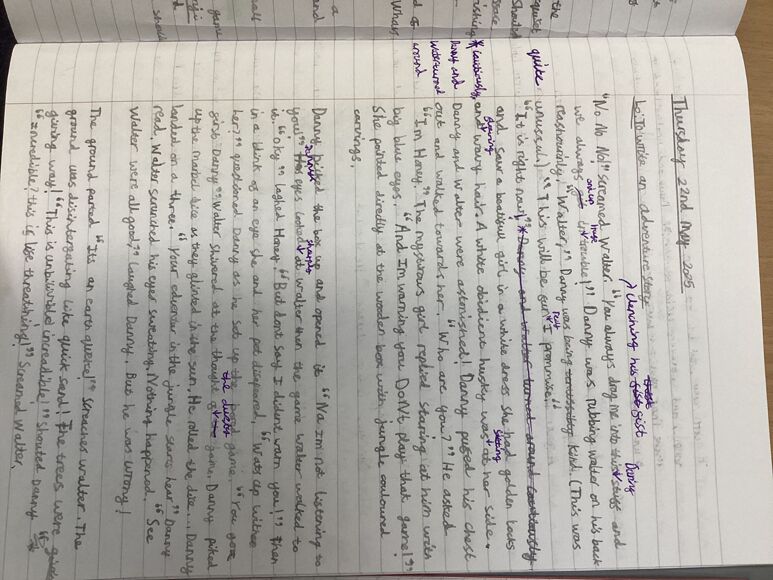 Thursday 22nd May 2025
L.o: To write an adventure story
clenching his fist
"No No No!" screamed Walter. "You always drag me into this stuff and
we always end up in huge trouble!" Danny was rubbing walter on his back
reashuringly "Walter," Danny was being kind. (This was
quite unusual.) "This will be fun I promise."
"It is right now!" Danny and walter turned around cautiously
Cautiously, Danny and Walter turned around
and saw a beatiful girl in a white dress she had golden locks
and wavy hair. A white obidient husky was sitting at her side.
Danny and Walter were astonished! Danny puffed his chest
out and walked towards her. "Who are you?" He asked
"I'm Honey." The mysturous girl replied staring at him with
big blue eyes. "And I'm warning you DoNt play that game!"
She pointed directly at the wooden box with jungle couloured
carvings.
Danny picked the box up and opened it "Na im not listening to
you!" Danny's eyes looked sharply at walter then the game walter walked to
it. "Oky" laghed Honey. "But dont say I dident warn you!" Then
in a blink of an eye she and her pet disapeared. "Wats up withe
her?" questioned Danny as he set up the board game. "You goe
first Danny" Walter shivered at the thought of the game. Danny picked
up the marbel dice as they glisted in the sun. He rolled the dice... Danny
landed on a three. "Your edvencer in the jungle starts hear" Danny
read. Walter scrunched his eyes sweating. Nothing happened. "See
Walter were all good," laughed Danny. But he was wrong!
The ground parted "Its an earth quake!" screaches walter. The
ground was disintergrating like quick sand! The trees were
giving way! "This is unbilivible! increadible!" Shouted Danny
"Incredible? this is life threathning!" Screamed Walter.